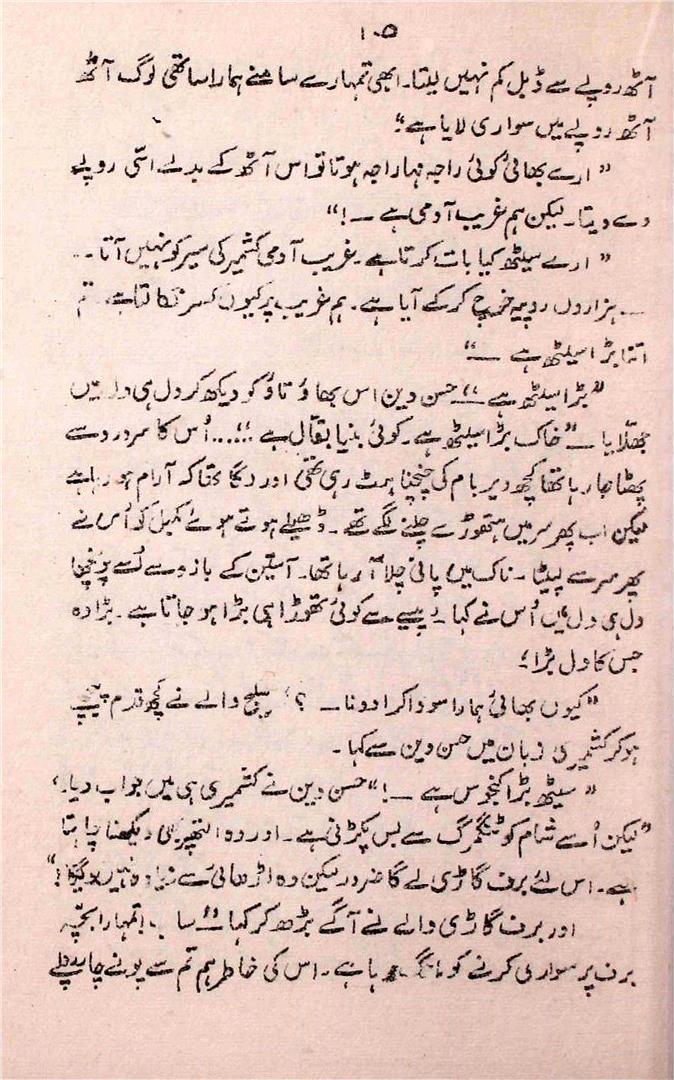 ۱۰۵
آٹھ روپے سے ڈبل کم نہیں لیتا۔ ابھی تمہارے سامنے ہمارا ساتھی لوگ آٹھ
آٹھ روپے میں سواری لایا ہے؛"
" ارے بھائی کوئی راجہ مہاراجہ ہوتا تو اس آٹھ کے بدلے اسّی روپے
دے دیتا۔ لیکن ہم غریب آدمی ہے ــ!"
" ارے سیٹھ کیا بات کرتا ہے۔ غریب آدمی کشمیر کی سیر کو نہیں آتا۔۔
ــ ہزاروں روپیہ خرچ کر کے آیا ہے۔ ہم غریب پر کیوں کسر نکالتا ہے تم
اتنا بڑا سیٹھ ہے ــ"
"بڑا سیٹھ ہے ــ" حسن دین اس بھاؤ تاؤ کو دیکھ کر دل ہی دل میں
جھلّایا ــ "خاک بڑا سیٹھ ہے۔ کوئی بنیا بقّال ہے "... اُس کا سر درد سے
پھٹا جا رہا تھا کچھ دیر بام کی چنچنا ہٹ رہی تھی اور لگا تھا کہ آرام ہو رہا ہے
لیکن اب پھر سر میں ہتھوڑے چلنے لگے تھے۔ ڈھیلے ہوتے ہوئے کمبل کو اُس نے
پھر سر سے لپیٹا۔ ناک میں پانی چلا آ رہا تھا۔ آستین کے بازو سے اُسے پونچھا
دل ہی دل میں اُس نے کہا۔ روپیے سے کوئی تھوڑا ہی بڑا ہو جاتا ہے۔ بڑا وہ
جس کا دل بڑا؛
"کیوں بھائی ہمارا سودا کرا دو نا ــ ؟" سلیج والے نے کچھ قدم پیچھے
ہو کر کشمیری زبان میں حسن دین سے کہا۔
" سیٹھ بڑا کنجوس ہے ــ!" حسن دین نے کشمیری ہی میں جواب دیا۔
"لیکن اُسے شام کو ٹنگمرگ سے بس پکڑنی ہے۔ اور وہ التھپر بھی دیکھنا چاہتا
ہے۔ اس لئے برف گاڑی لے گا ضرور لیکن وہ اڑھائی سے زیادہ نہیں دیگا!"
اور برف گاڑی والے نے آگے بڑھ کر کہا ــ "ساب! تمہارا بچّہ
برف پر سواری کرنے کو مانگ رہا ہے۔ اس کی خاطر ہم تم سے پونے چار روپے